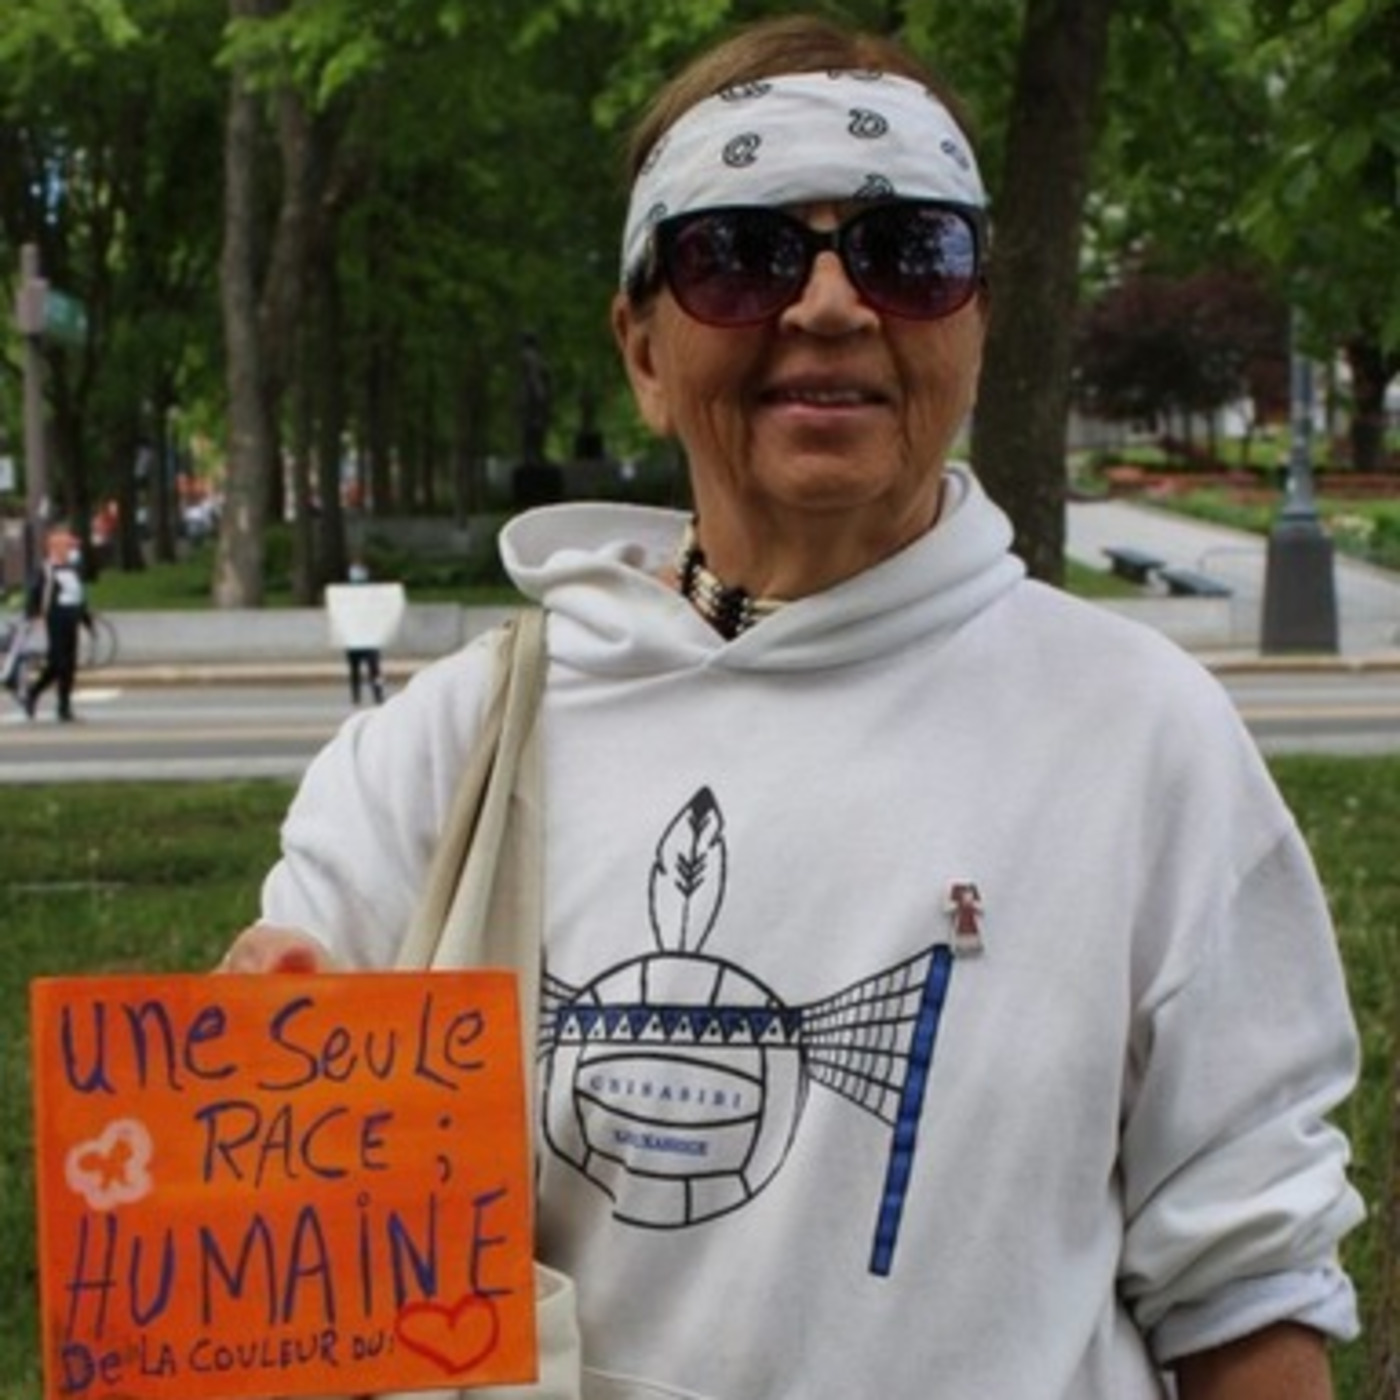 une seule
RACE ;
HUMAINE
De LA COULEUR DU:
CHISASIBI